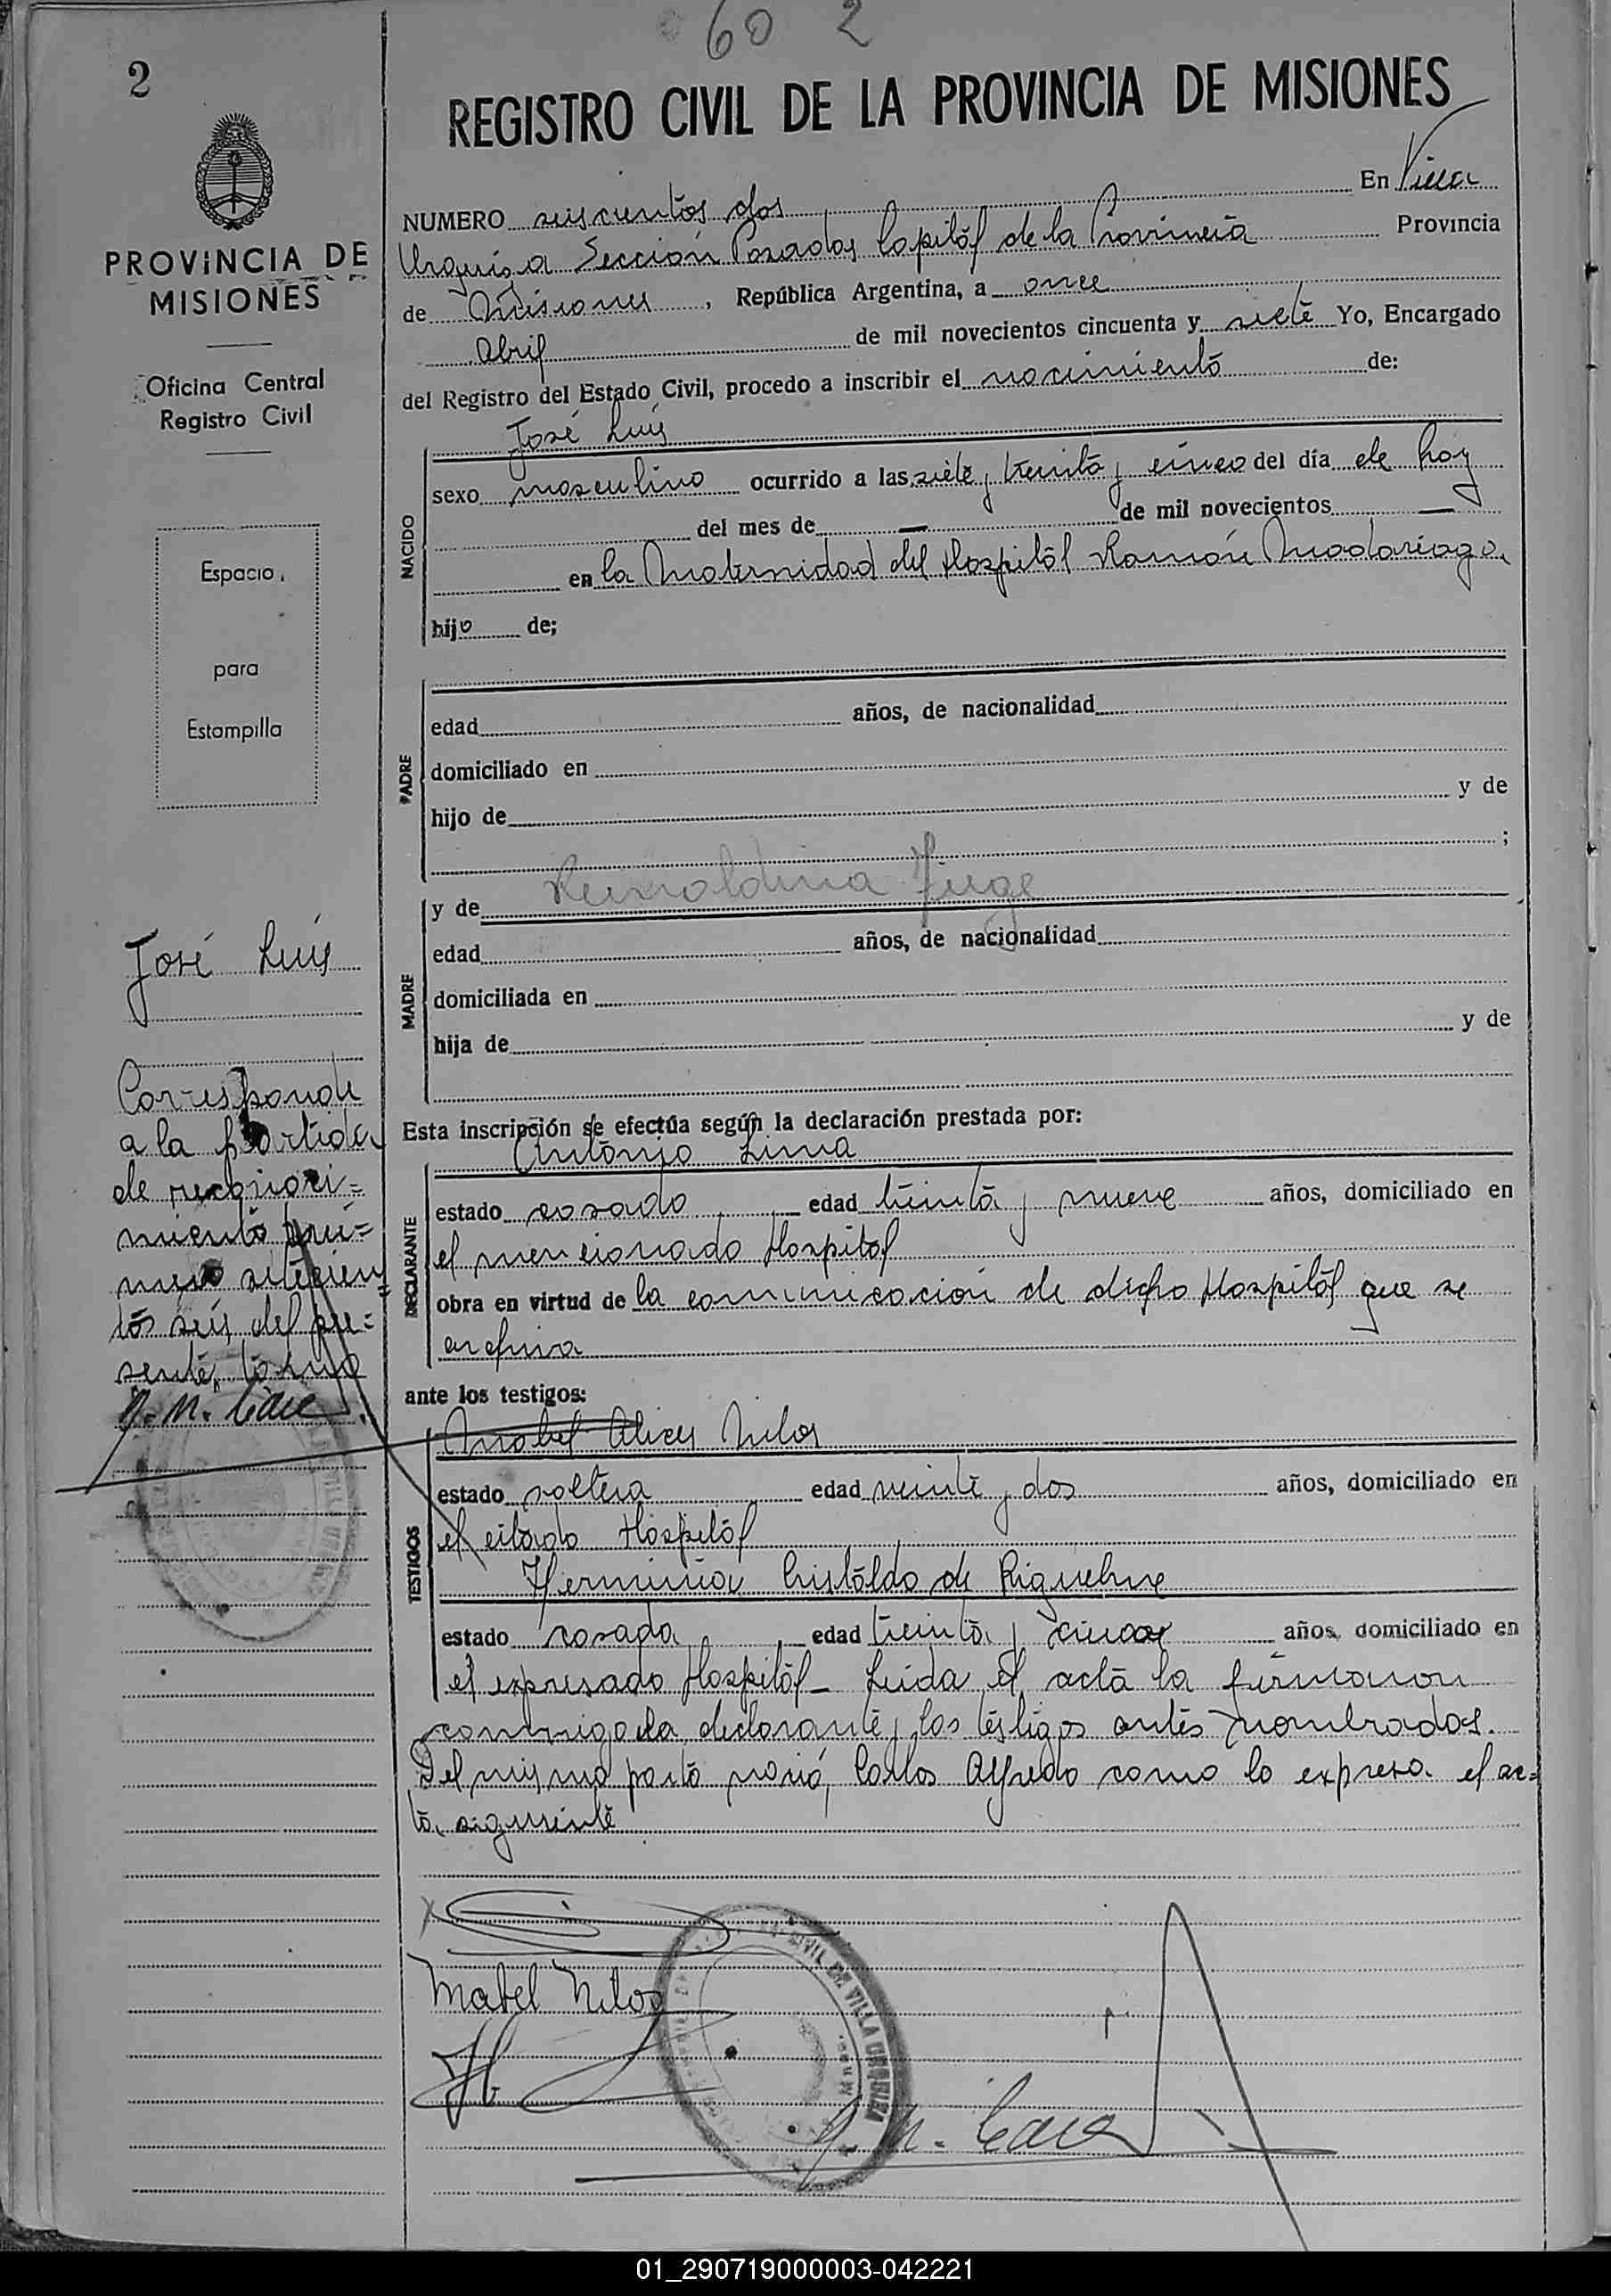 60 2
2
REGISTRO CIVIL DE LA PROVINCIA DE MISIONES
PROVINCIA DE
MISIONES
Oficina Central
Registro Civil
Espacio
para
Estampilla
José Luís
Corresponde
a la partida
de reconoci=
miento nú=
mero setecien=
tos seis del pre=
sente tomo
NUMERO seiscientos dos En Villa
Urquiza Sección Posadas Capital de la Provincia Provincia
de Misiones, República Argentina, a once
Abril de mil novecientos cincuenta y siete Yo, Encargado
del Registro del Estado Civil, procedo a inscribir el nacimiento de:
NACIDO
José Luís
sexo masculino ocurrido a las siete y treinta y cinco del día de hoy
del mes de — de mil novecientos —
en la Maternidad del Hospital Ramón Madariaga
hijo de;
PADRE
edad años, de nacionalidad
domiciliado en
hijo de y de
;
MADRE
y de Reinoldina
edad años, de nacionalidad
domiciliada en
hija de y de
Esta inscripción se efectúa según la declaración prestada por:
DECLARANTE
Antonio Lima
estado casado edad treinta y nueve años, domiciliado en
el mencionado Hospital
obra en virtud de la comunicación de dicho Hospital que se
archiva
ante los testigos:
TESTIGOS
Mabel Alicia Nilos
estado soltera edad veinte y dos años, domiciliado en
el citado Hospital
Herminia Cristaldo de Riquelme
estado casada edad treinta y cinco años, domiciliado en
el expresado Hospital - Leída el acta la firmaron
conmigo la declarante y los testigos antes nombrados.
Del mismo parto nació, Carlos Alfredo como lo expresa el ac=
ta siguiente
Mabel Nilos
CIVIL DE VILLA URQUIZA
01_290719000003-042221